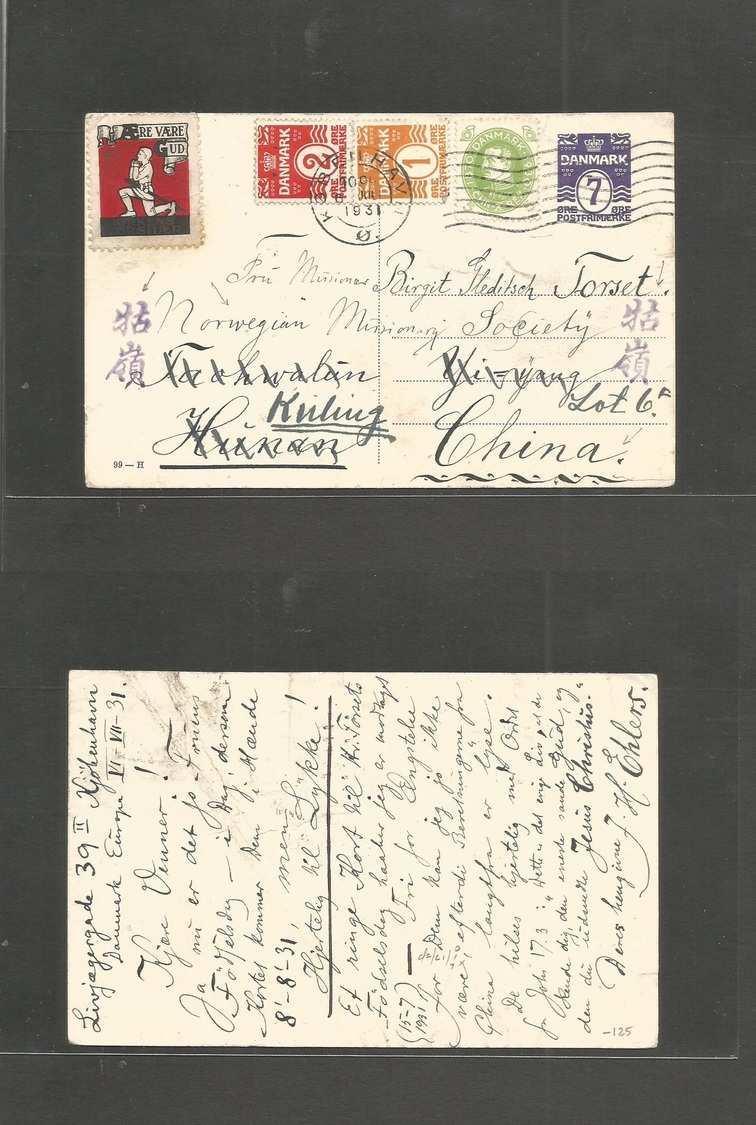 ÆRE VÆRE
GUD
DANMARK
2
ØRE
ØRE
DANMARK
1
ØRE
ØRE
DANMARK
DANMARK
7
ØRE ØRE
POSTFRIMÆRKE
KØBENHAVN
1931
Ø.
Fru Missionær Birgit Gleditsch Torset!
Norwegian Missionary Society
牯嶺
牯嶺
Taohwalun Yi-yang
Kuling Lot 6F
Hunan China.
99 — H
Livjægergade 39 II Kjöbenhavn
Danmark Europa VI-VII-31.
Kjære Venner!
Ja nu er det jo Fruens
Födselsdag — i Dag, dersom
Kortet kommer Dem i Hænde
8'-8'-31 men,
Hjertelig til Lykke!
Et ringe Kort til Hr. Torsets
Födselsdag haaber jeg er modtaget
(15-7)
1931
Fri for Ængstelse
for Dem kan jeg jo ikke
være, efterdi Beretningerne fra
China langtfra er lyse.
De hilses hjertelig med Ordet
fr Joh: 17.3: "Dette er det evige Liv, at de
kende dig, den eneste sande Gud, og
den du udsendte Jesus Christus."
Deres hengivne J. H. Ehlers.
-125